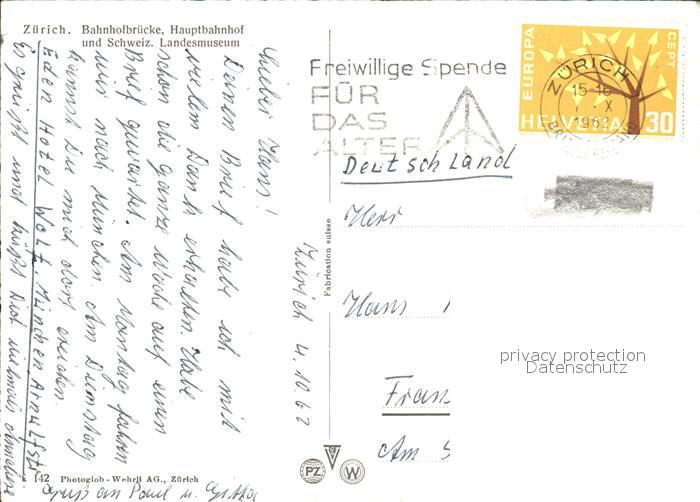 Zürich. Bahnhofbrücke, Hauptbahnhof
und Schweiz. Landesmuseum
Zürich 4.10.62
Lieber Hans!
Deinen Brief habe ich mit
vielem Dank erhalten. Habe
schon die ganze Woche auf einen
Brief gewartet. Am Montag fahren
wir nach München. Am Dienstag
kannst Du mich dort erreichen.
Eden Hotel Wolf München Arnulfstr
Es grüßt und küßt Dich vielmals
Gruß an Paul u. Gitta
142 Photoglob-Wehrli AG., Zürich
Fabrication suisse
PZ
W
Freiwillige Spende
FÜR
DAS
ALTER
EUROPA
CEPT
HELVETIA 30
ZÜRICH
15-16
X
1962
Deutschland
Herr
Hans
Fran
Am S
privacy protection
Datenschutz